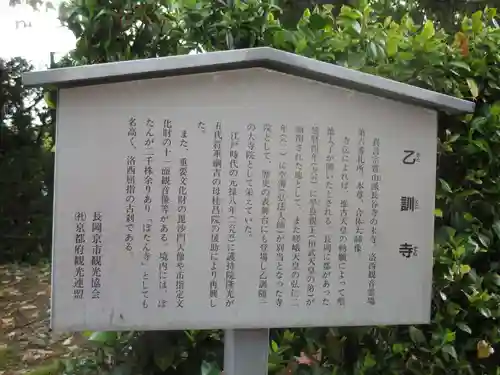 乙訓寺
真言宗豊山派長谷寺の末寺。洛西観音霊場
第六番札所。本尊、合体大師像
寺伝によれば、推古天皇の勅願によって聖
徳太子が開いたとされる。長岡に都があった
延暦四年(七八五)に早良親王(桓武天皇の弟)が
幽閉された場として、また嵯峨天皇の弘仁二
年(八一一)に空海(弘法大師)が別当となった寺
院として、歴史の表舞台にも登場した乙訓一
の大寺院として栄えていた。
江戸時代の元禄八年(一六九五)に護持院隆光が
五代将軍綱吉の母桂昌院の援助により再興し
た。
また、重要文化財の毘沙門天像や市指定文
化財の十一面観音像等がある。境内には、ぼ
たんが二千株余りあり「ぼたん寺」としても
名高く、洛西屈指の古刹である。
長岡京市観光協会
(社)京都府観光連盟